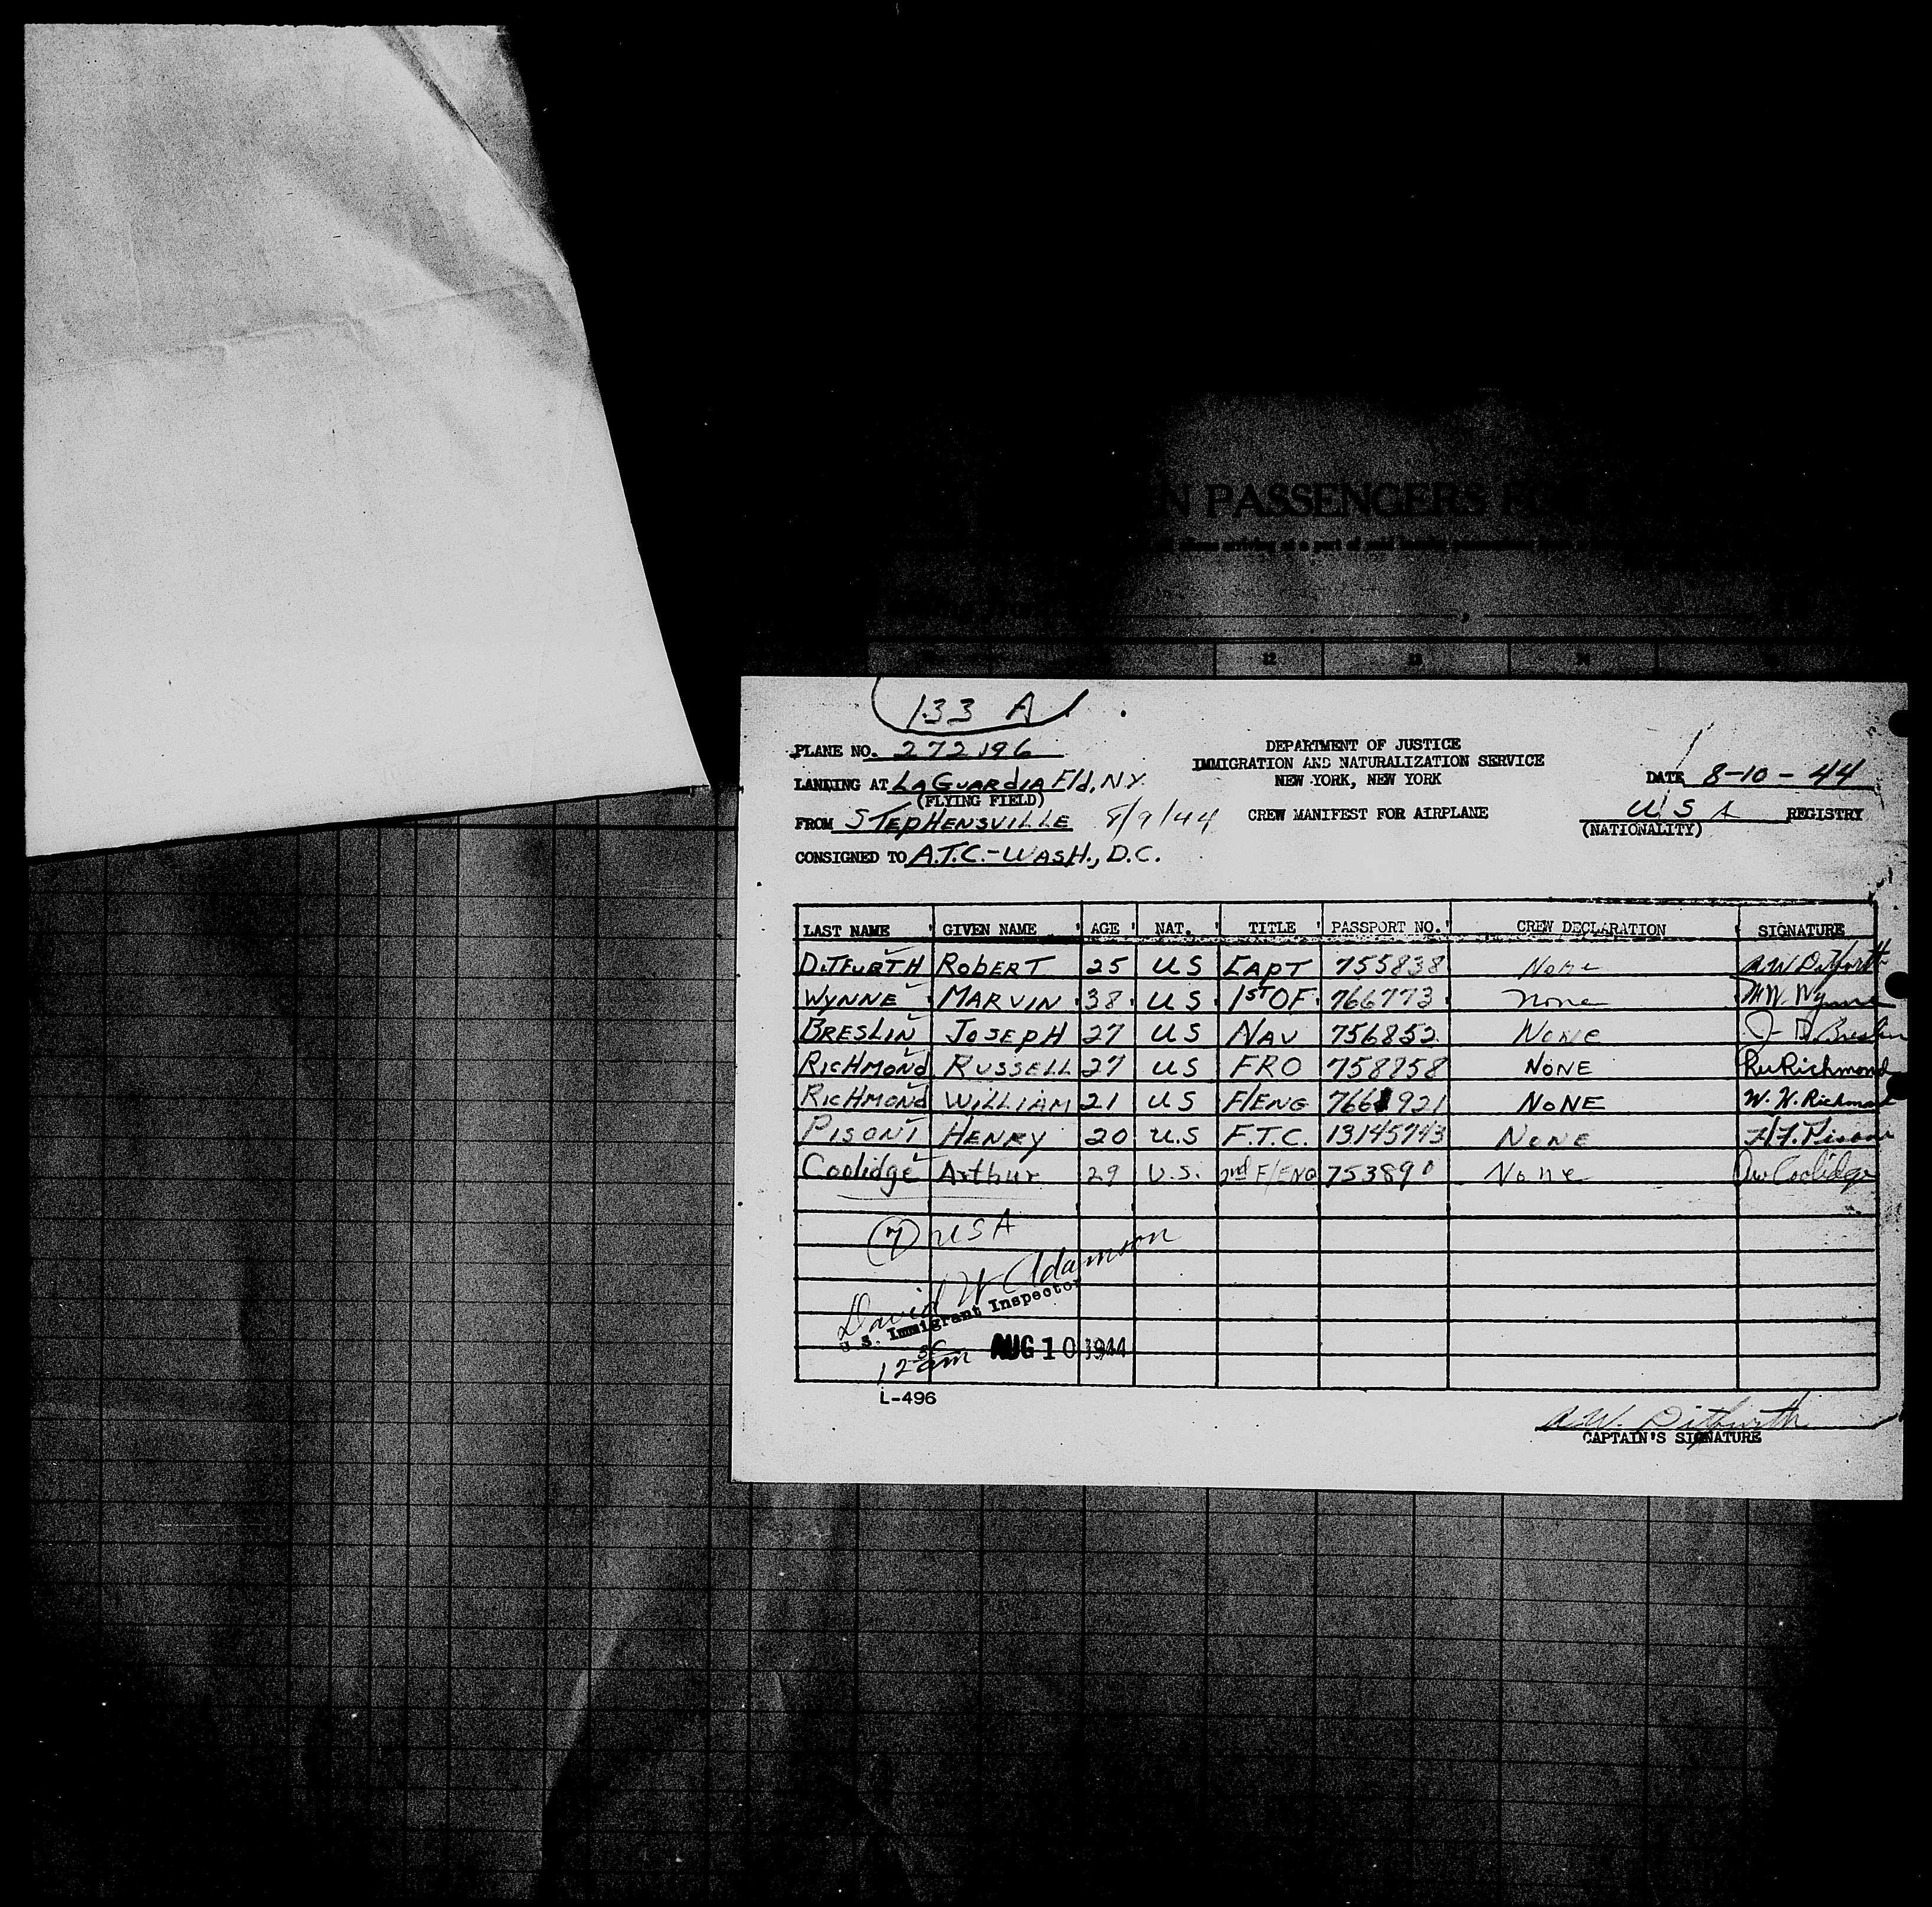 N PASSENGERS
12 13 14
133 A
PLANE NO. 272196
DEPARTMENT OF JUSTICE
IMMIGRATION AND NATURALIZATION SERVICE
LANDING AT LaGuardia Fld, N.Y.
NEW YORK, NEW YORK
DATE 8-10-44
(FLYING FIELD)
FROM STEPHENSVILLE 8/9/44
CREW MANIFEST FOR AIRPLANE
U S A REGISTRY
(NATIONALITY)
CONSIGNED TO A.T.C.-WASH., D.C.
LAST NAME GIVEN NAME AGE NAT. TITLE PASSPORT NO. CREW DECLARATION SIGNATURE
DITFURTH ROBERT 25 US CAPT 755838 None R.W. Ditfurth
WYNNE MARVIN 38 US 1ST OF 766773 none M.W. Wynne
BRESLIN JOSEPH 27 US NAV 756852 None J. D. Breslin
RICHMOND RUSSELL 27 US FRO 758858 NONE Richmond
RICHMOND WILLIAM 21 US F/ENG 7661921 NONE W. H. Richmond
PISONI HENRY 20 U.S F.T.C. 13145743 NONE H.F. Pisoni
Coolidge Arthur 29 U.S. 2nd F/ENG 753890 None Coolidge
(7) USA
David W Adamson
U. S. Immigrant Inspector
12 am AUG 10 1944
L-496
R.W. Ditfurth
CAPTAIN'S SIGNATURE